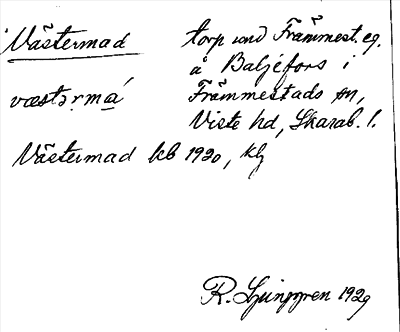 Västermad torp und Främmest. eg.
å Baljefors i
væstərmá Främmestads sn,
Viste hd, Skarab. l.
Västermad kb 1920, klg
R. Ljunggren 1929